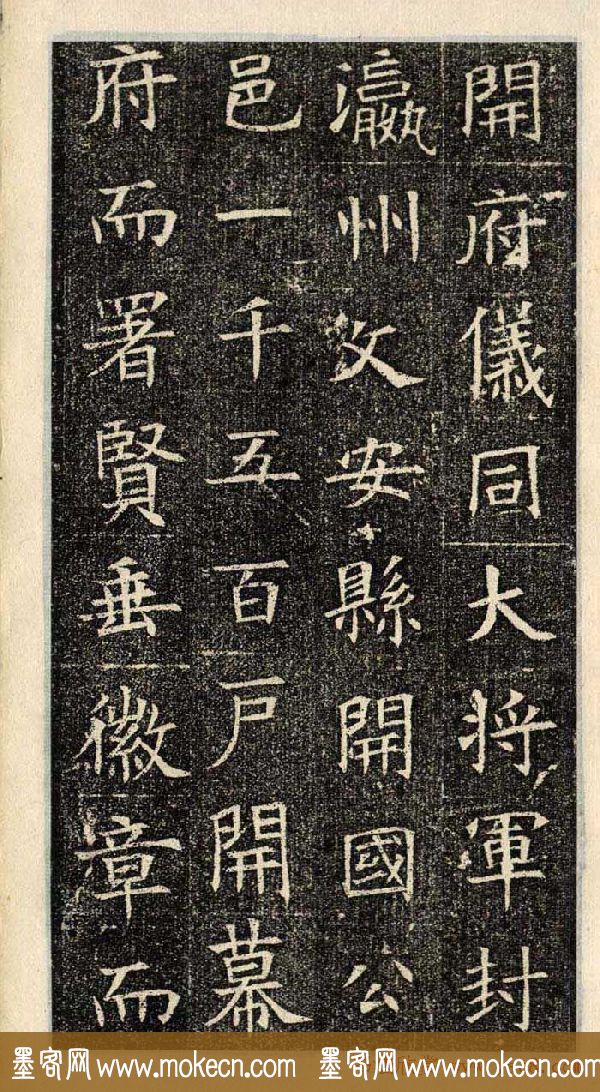 開府儀同大將軍封
瀛州文安縣開國公
邑一千五百戶開幕
府而署賢垂徽章而
墨客网 www.mokecn.com 墨客网 www.mokecn.com